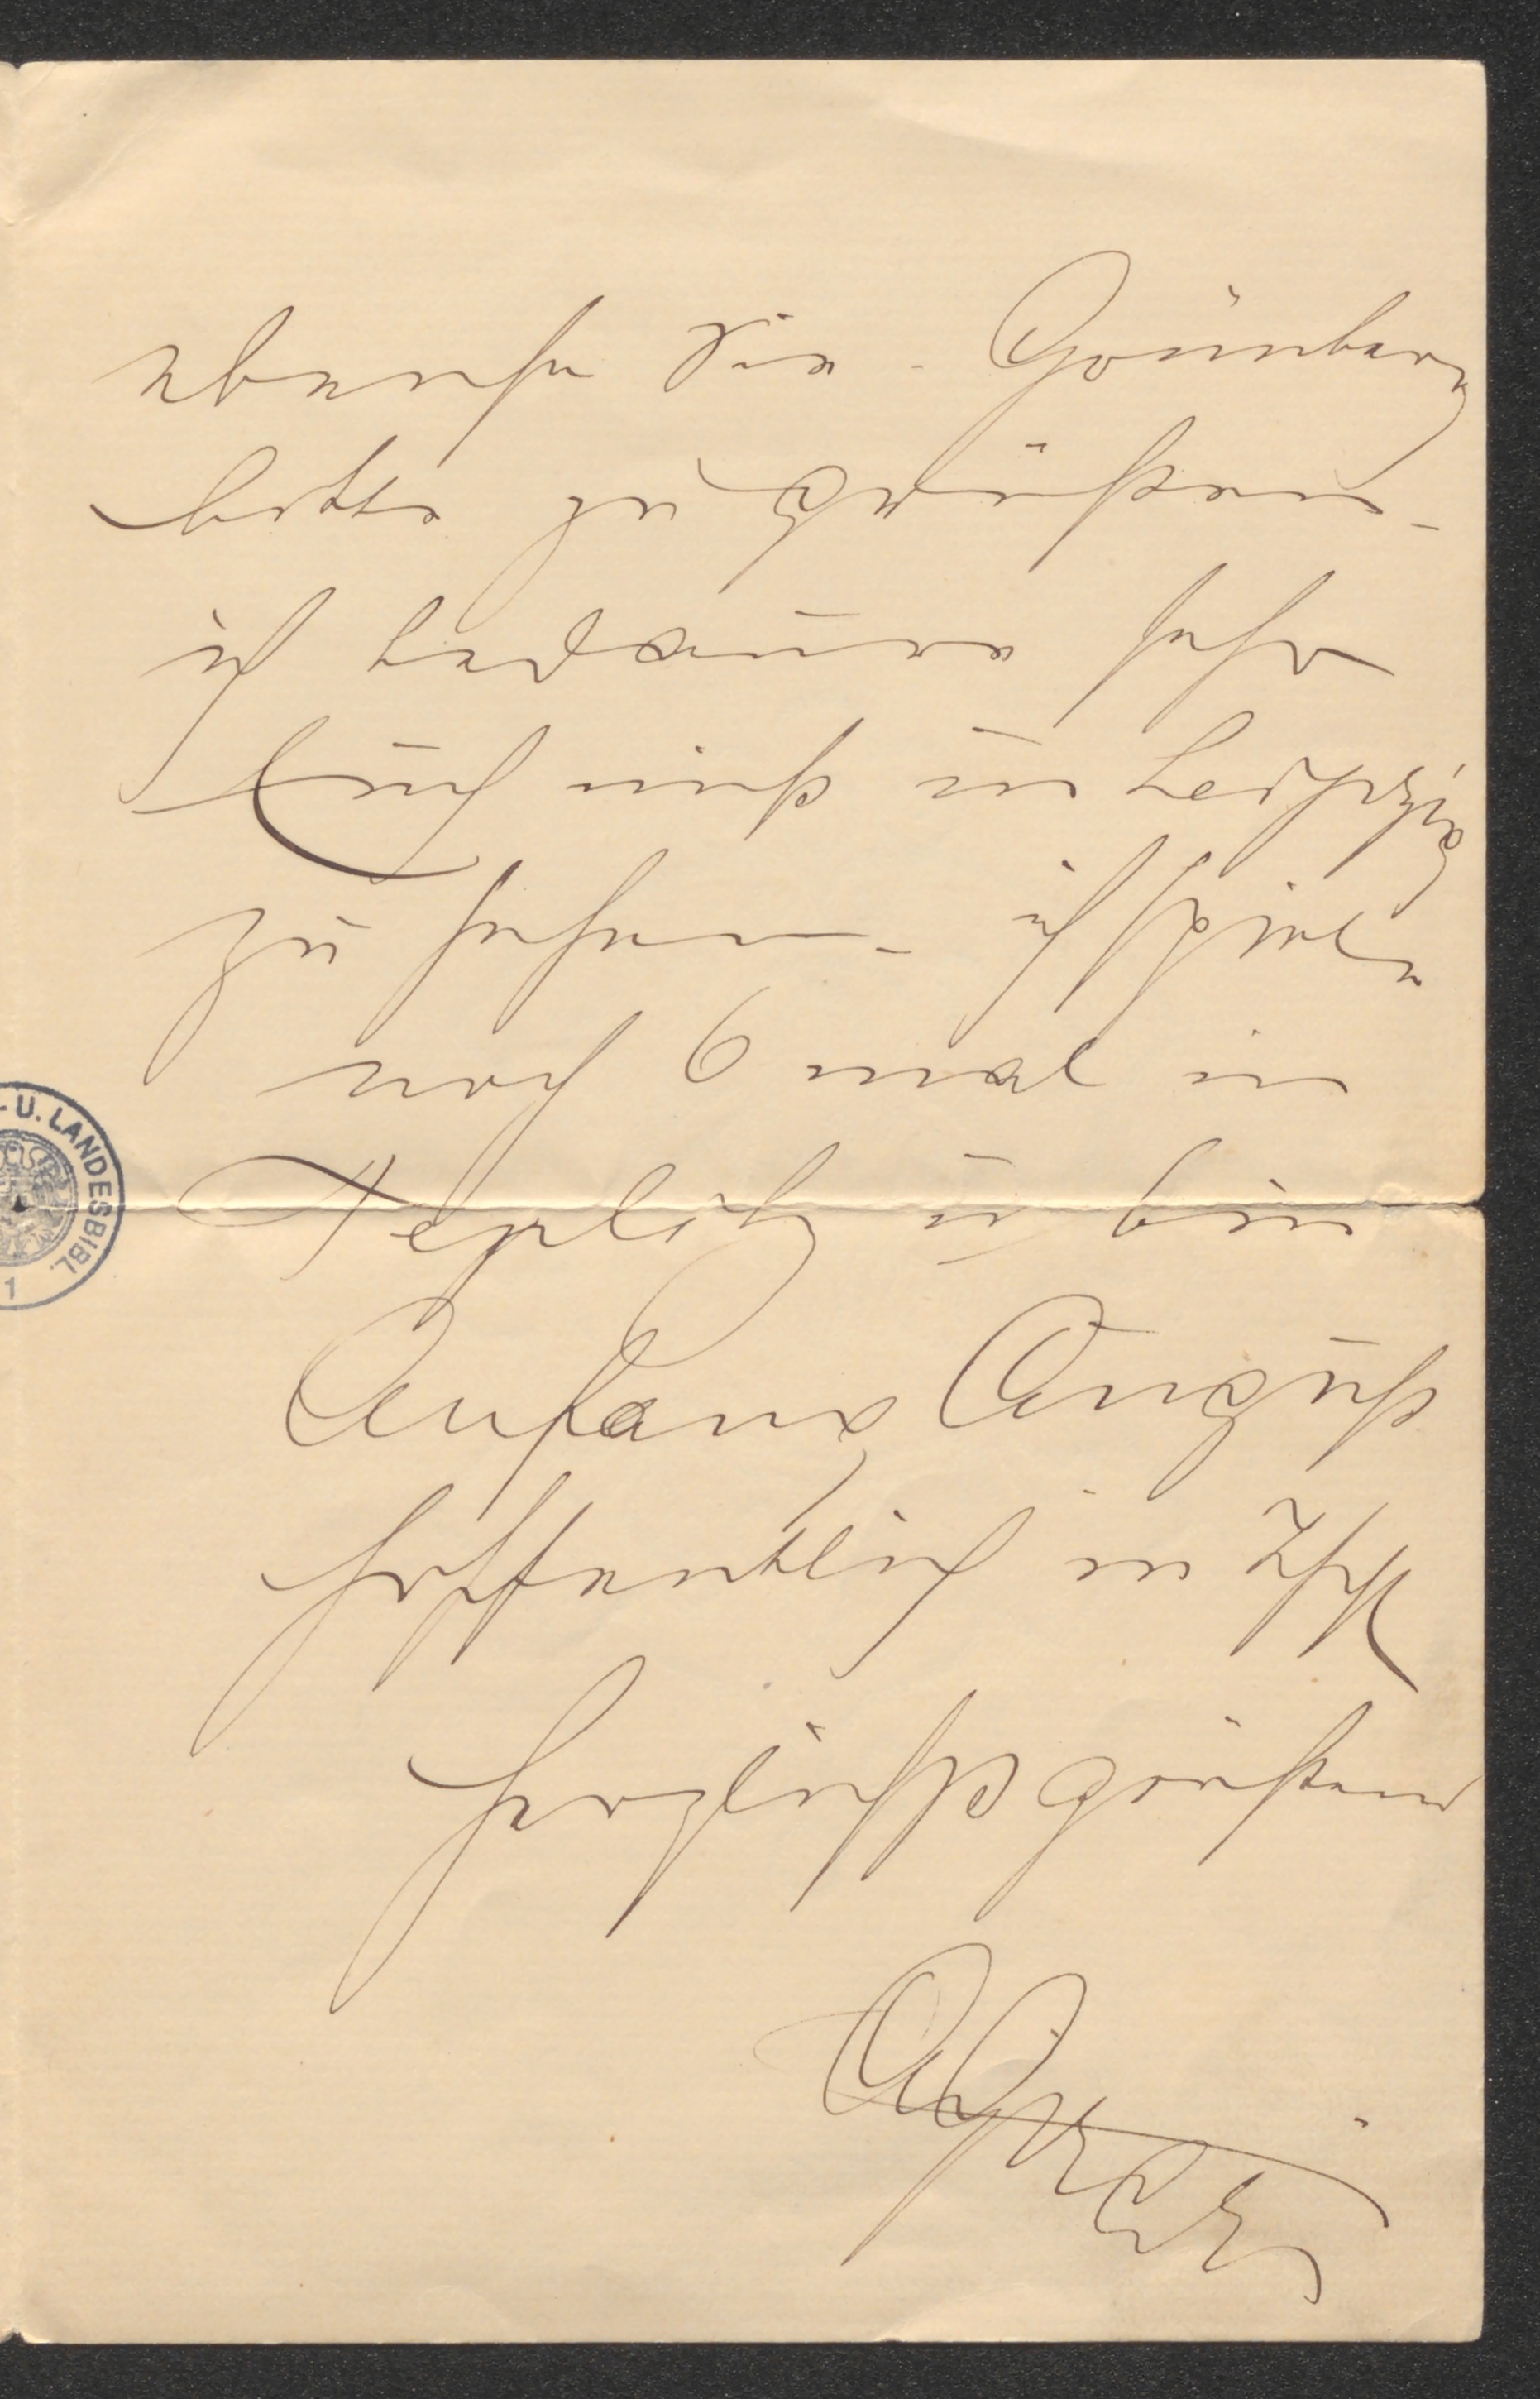 ebenso Die. Grünberg
bitte zu grüßen -
ich bedaure sehr
Euch nicht in Leipzig
zu sehen - ich spiele
noch 6 mal in
Teplitz u bin
Anfang August
hoffentlich in
herzlichst grüßend
- U. LANDESBIBL.
1